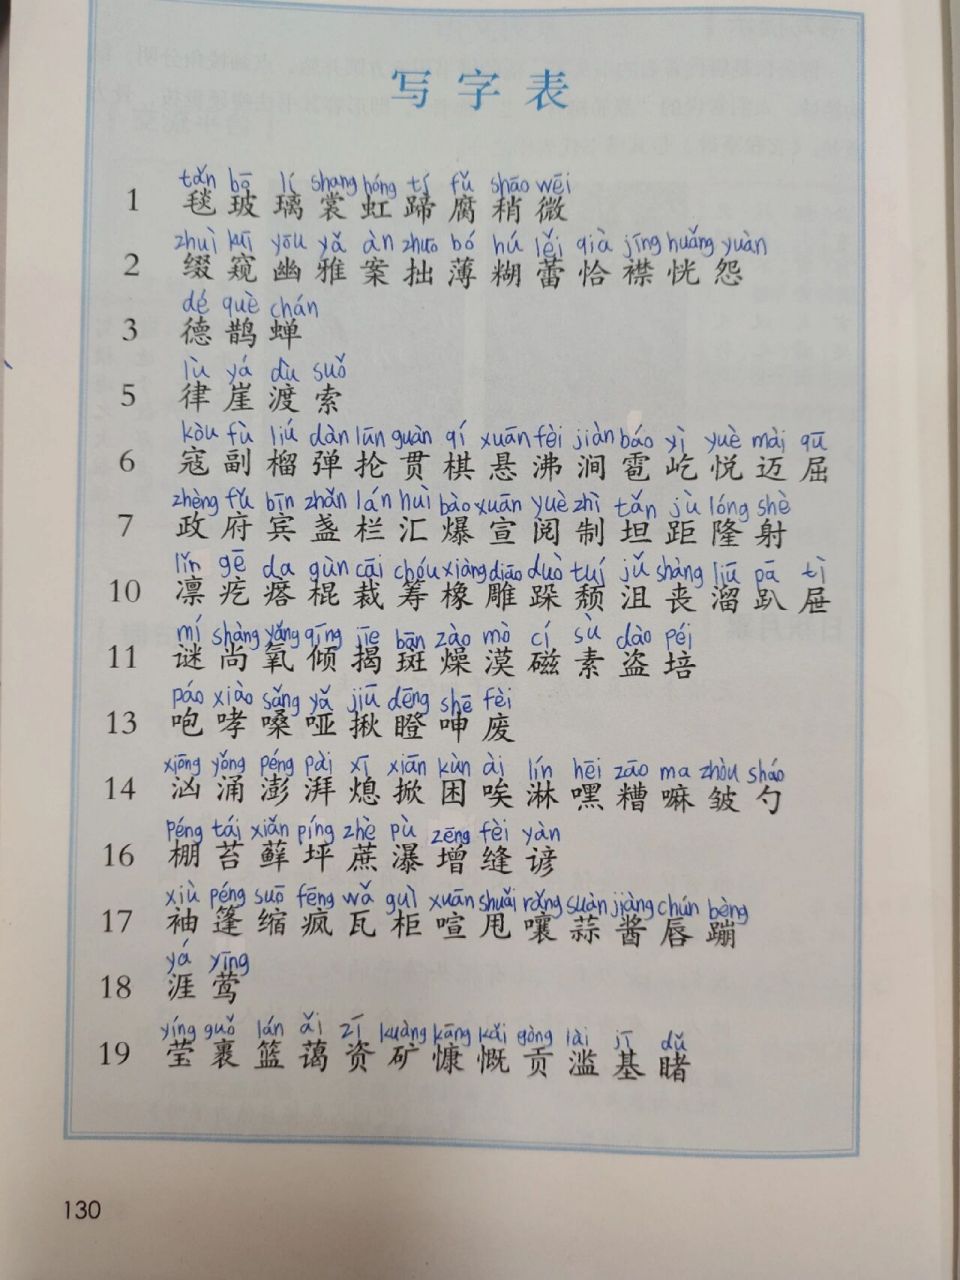 写字表
tǎn bō lí shang hóng tí fǔ shāo wēi
1 毯玻璃裳虹蹄腐稍微
zhuì kuī yōu yǎ àn zhuō bó hú lěi qià jīng huǎng yuàn
2 缀窥幽雅案拙薄糊蕾恰襟恍怨
dé què chán
3 德鹊蝉
lǜ yá dù suǒ
5 律崖渡索
kòu fù liú dàn lūn guàn qí xuān fèi jiàn báo yì yuè mài qū
6 寇副榴弹抡贯棋悬沸涧雹屹悦迈屈
zhèng fǔ bīn zhǎn lán huì bào xuān yuè zhì tǎn jù lóng shè
7 政府宾盏栏汇爆宣阅制坦距隆射
lǐn gē da gùn cāi chóu xiàng diāo duò tuí jǔ shàng liū pā tì
10 凛疙瘩棍裁筹橡雕跺颓沮丧溜趴屉
mí shàng yǎng qīng jie bān zào mò cí sù dào péi
11 谜尚氧倾揭斑燥漠磁素盗培
páo xiào sǎng yǎ jiū dēng shē fèi
13 咆哮嗓哑揪瞪呻废
xiōng yǒng péng pài xī xiān kùn ài lín hēi zāo ma zhòu sháo
14 汹涌澎湃熄掀困唉淋嘿糟嘛皱勺
péng tái xiǎn píng zhè pù zēng fèi yàn
16 棚苔藓坪蔗瀑增缝谚
xiù péng suō fēng wǎ guì xuān shuǎi rǎng suàn jiàng chún bèng
17 袖篷缩疯瓦柜喧甩嚷蒜酱唇蹦
yá yīng
18 涯莺
yíng guǒ lán ǎi zī kuàng kāng kǎi gòng lài jī dǔ
19 莹裹篮蔼资矿慷慨贡滥基睹
130